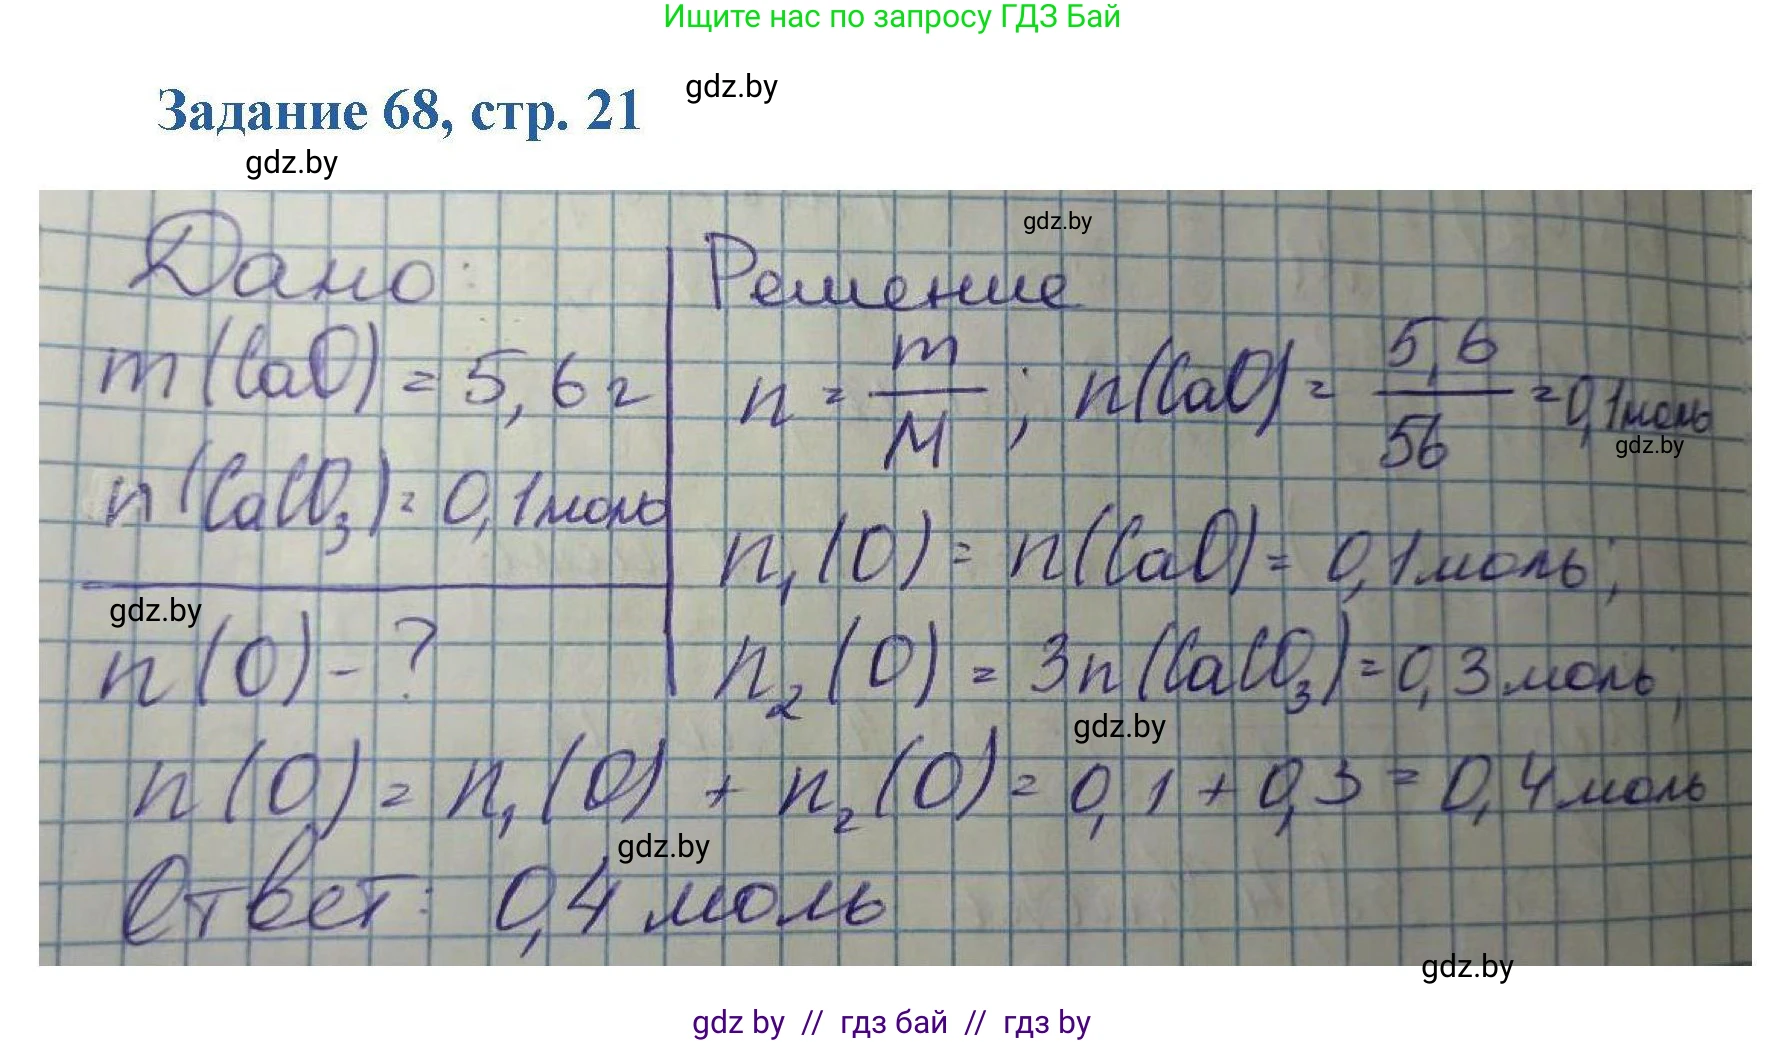 Ищите нас по запросу ГДЗ Бай
gdz.by
Задание 68, стр. 21
gdz.by
gdz.by
Дано:
m(CaO) = 5,6 г
n(CaCO₃) = 0,1 моль
gdz.by
n(O) - ?
Решение
n = m/M ; n(CaO) = 5,6/56 = 0,1 моль
gdz.by
n₁(O) = n(CaO) = 0,1 моль;
n₂(O) = 3n(CaCO₃) = 0,3 моль;
gdz.by
n(O) = n₁(O) + n₂(O) = 0,1 + 0,3 = 0,4 моль
gdz.by
Ответ: 0,4 моль
gdz.by
gdz by // гдз бай // гдз by